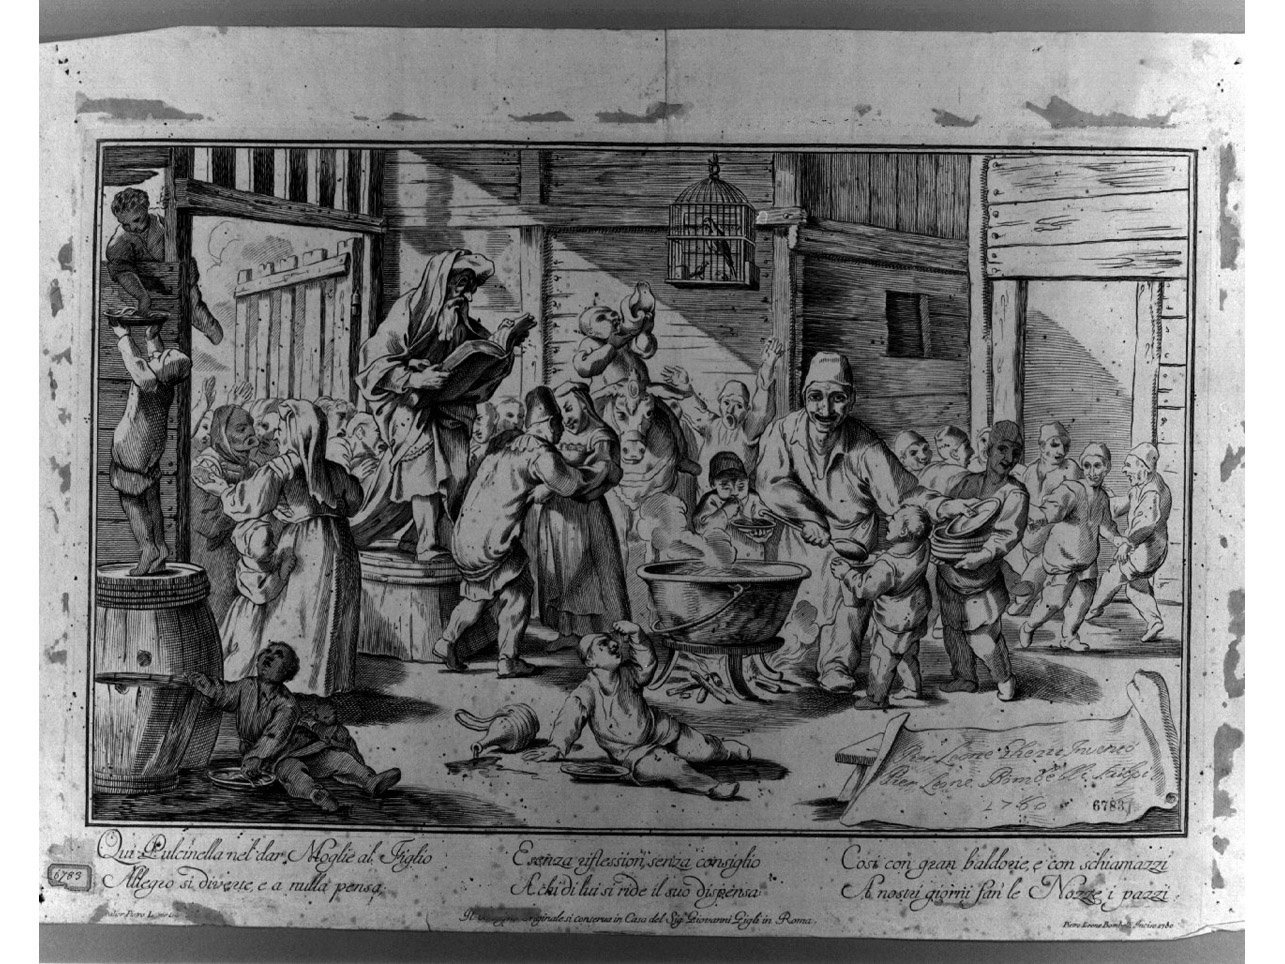 Pier Leone Ghezzi Inventò
Pier Leone Bombelli Sculpi
1760
6783
Qui Pulcinella nel dar Moglie al Figlio
Allegro si diverte, e a nulla pensa
Esenza riflession, senza consiglio
A chi di lui si ride il suo dispensa
Così con gran baldorie, e con schiamazzi
A nostri giorni fan le Nozze i pazzi.
6783
Il originale si conserva in Casa del Sig. Giovanni Gigli in Roma.
Pietro Leone Bombelli Incise 1760